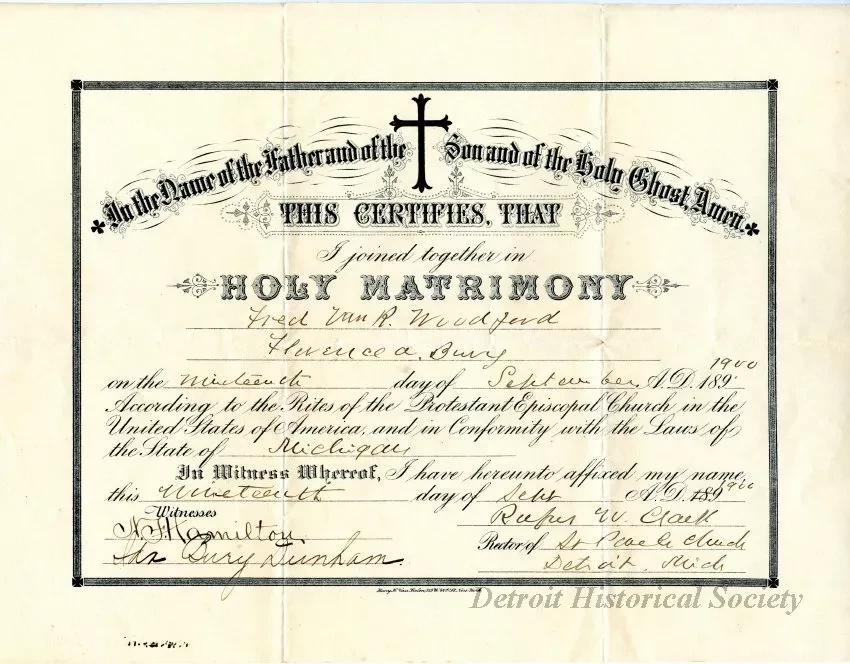 In the Name of the Father and of the Son and of the Holy Ghost, Amen.
THIS CERTIFIES, THAT
I joined together in
HOLY MATRIMONY
Fred Van R. Woodford
Florence A. Bury
on the nineteenth day of September A.D. 189 1900
According to the Rites of the Protestant Episcopal Church in the
United States of America, and in Conformity with the Laws of
the State of Michigan
In Witness Whereof, I have hereunto affixed my name,
this Nineteenth day of Sept A.D. 189 1900
Witnesses
Rufus W. Clark
N. J. Hamilton.
Rector of St Pauls Church
Bury Dunham.
Detroit. Mich
Detroit Historical Society